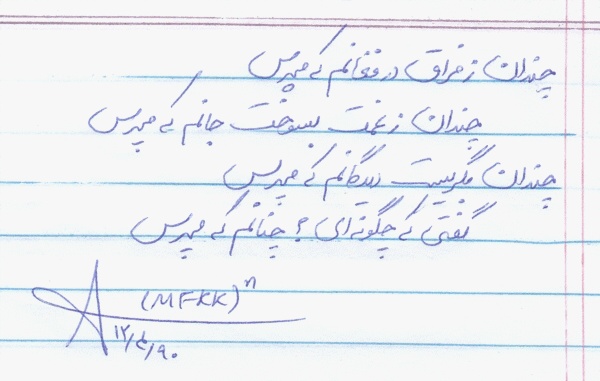 چندان ز فراق در فغانم که مپرس
چندان ز غمت بسوخت جانم که مپرس
چندان بگریست دیدگانم که مپرس
گفتی که چگونه‌ای؟ چنانم که مپرس
(MFKK)ⁿ
۱۲/۴/۹۰